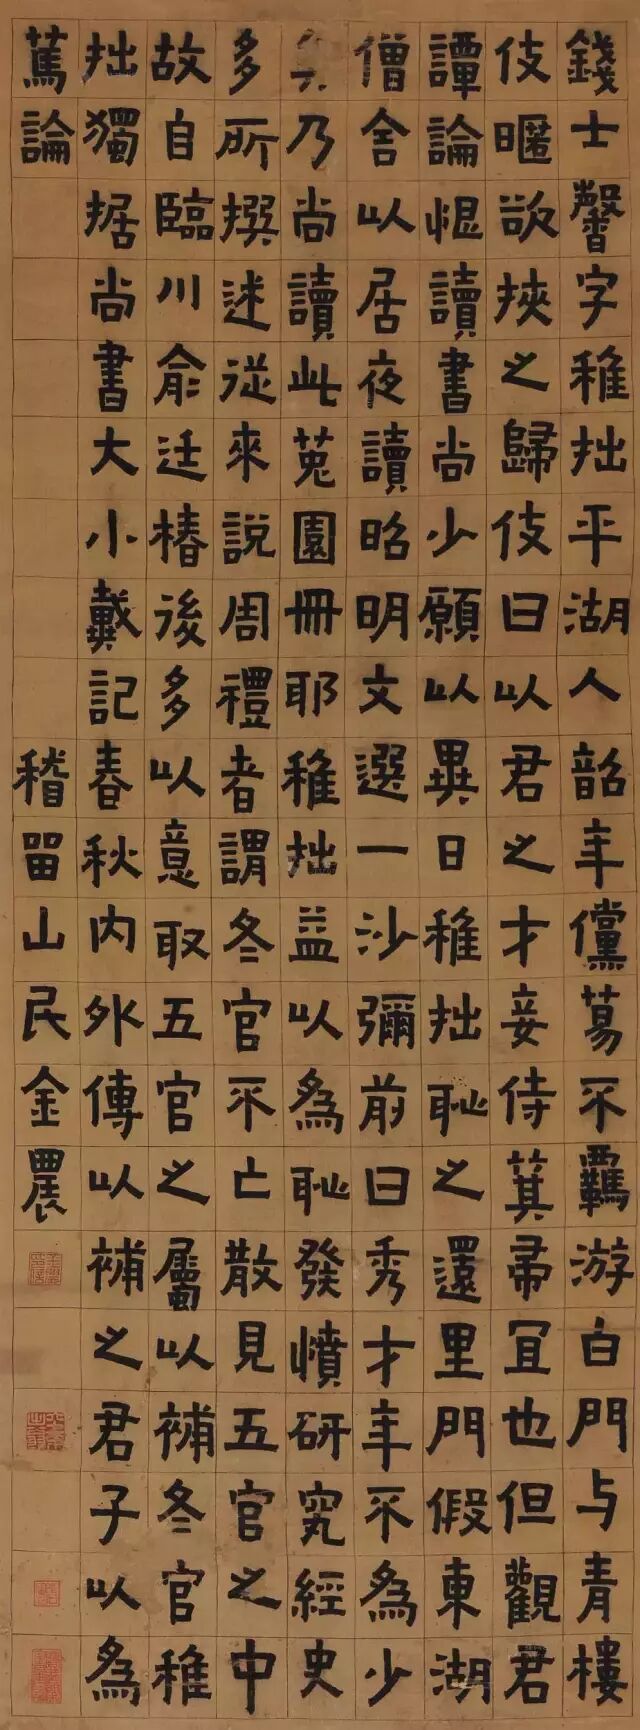 錢士馨字稚拙平湖人韶年儻蕩不羈游白門与青樓
伎暱欲挾之歸伎曰以君之才妾侍萁帚冝也但觀君
譚論悃讀書尚少願以異日稚拙恥之還里門假東湖
僧舍以居夜讀昭明文選一沙彌前曰秀才年不為少
矣乃尚讀此菟園冊耶稚拙益以為恥發憤研究經史
多所撰述從來說周禮者謂冬官不亡散見五官之中
故自臨川俞廷椿後多以意取五官之屬以補冬官稚
拙獨据尚書大小戴記春秋內外傳以補之君子以為
篤論
稽留山民金農